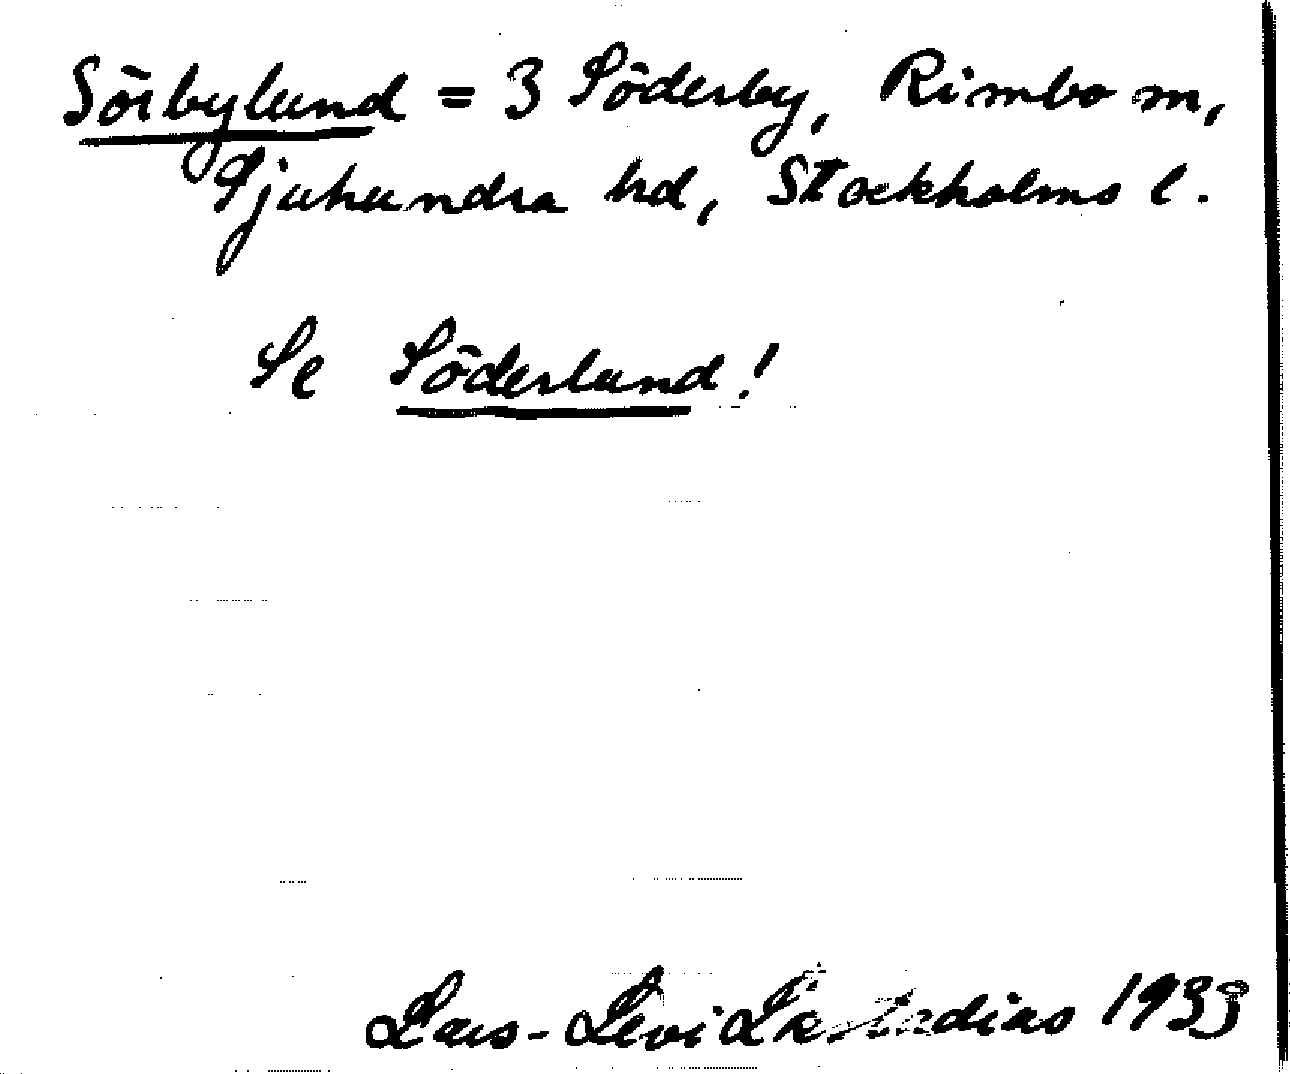 Sörbylund = 3 Söderby, Rimbo sn,
Sjuhundra hd, Stockholms l.
Se Söderlund!
Lars-Levi Læstadius 1933